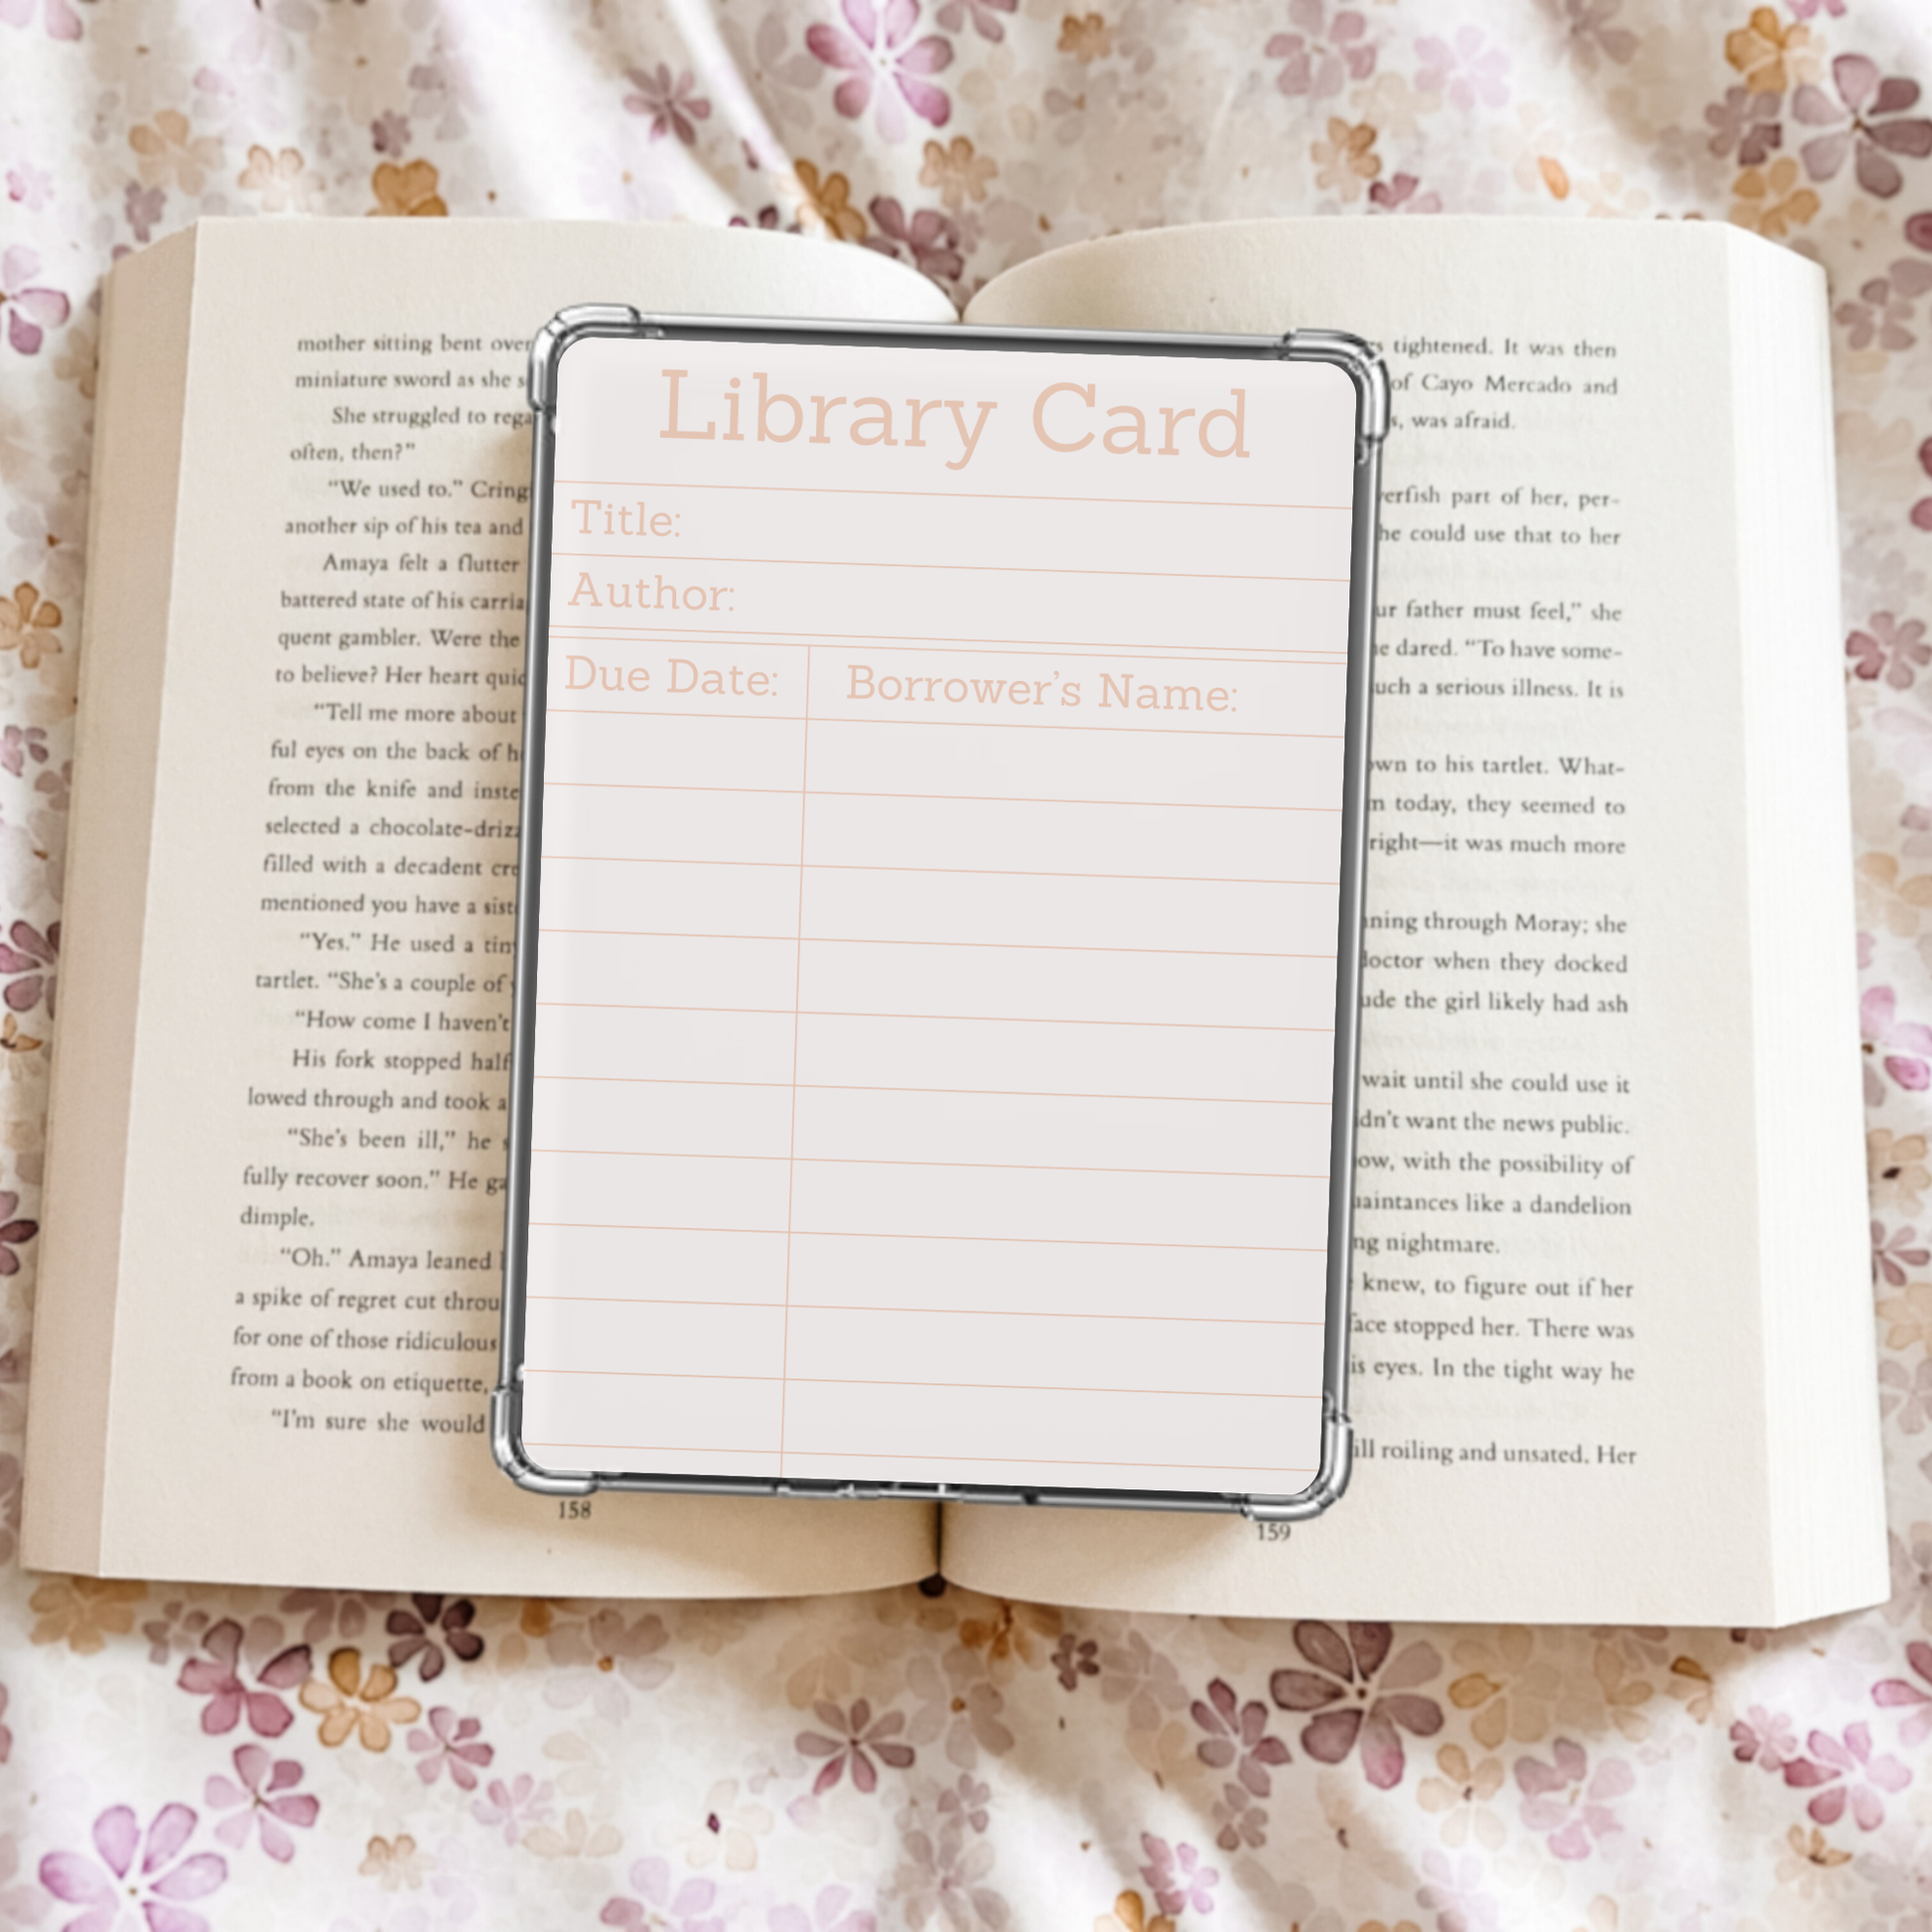 Library Card
Title:
Author:
Due Date:
Borrower's Name:
mother sitting bent over
miniature sword as she
She struggled to
often, then?”
“We used to.”
another sip of his tea and
Amaya felt a flutter
battered state of his
quent gambler. Were the
to believe? Her heart
“Tell me more about
ful eyes on the back of
from the knife and
selected a
filled with a decadent
mentioned you have a
“Yes.” He used a
tartlet. “She’s a couple of
“How come I haven’t
His fork stopped
lowed through and took a
“She’s been ill,” he
fully recover soon.” He
dimple.
“Oh.” Amaya leaned
a spike of regret cut
for one of those ridiculous
from a book on etiquette,
“I’m sure she would
158
tightened. It was then
of Cayo Mercado and
was afraid.
part of her, per-
he could use that to her
father must feel,” she
dared. “To have some-
such a serious illness. It is
to his tartlet. What-
today, they seemed to
right—it was much more
through Moray; she
doctor when they docked
the girl likely had ash
wait until she could use it
want the news public.
with the possibility of
like a dandelion
nightmare.
knew, to figure out if her
stopped her. There was
eyes. In the tight way he
roiling and unsated. Her
159